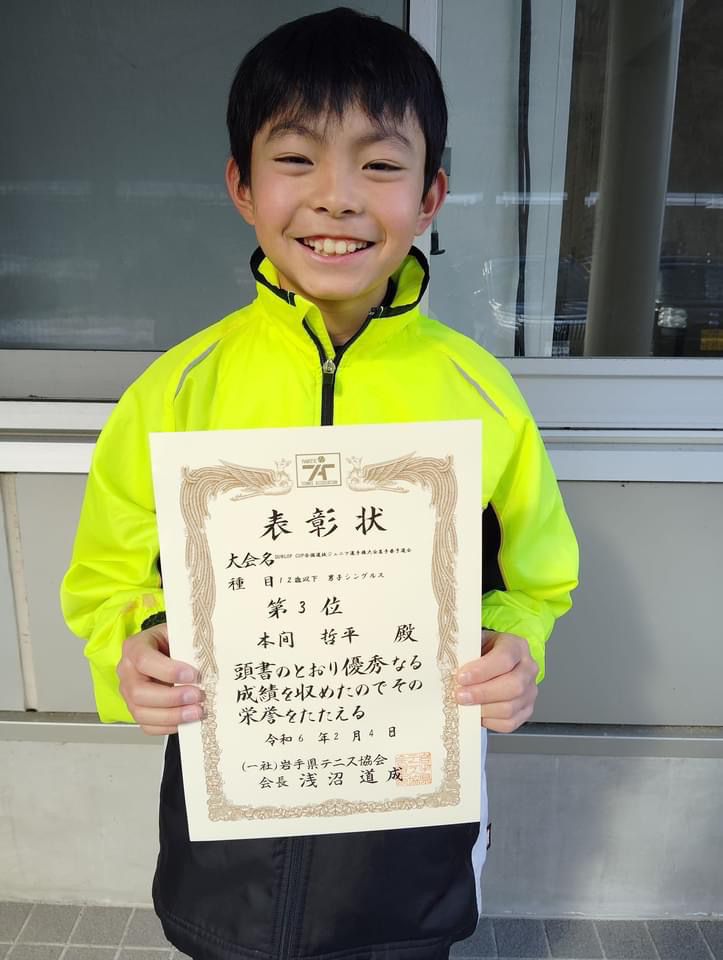 表彰状
大会名 DUNLOP CUP全国選抜ジュニア選手権大会岩手県予選会
種 目 12歳以下 男子シングルス
第 3 位
本间 哲平 殿
頭書のとおり優秀なる
成績を収めたのでその
栄誉をたたえる
令和 6 年 2 月 4 日
(一社)岩手県テニス協会
会長 浅沼 道成